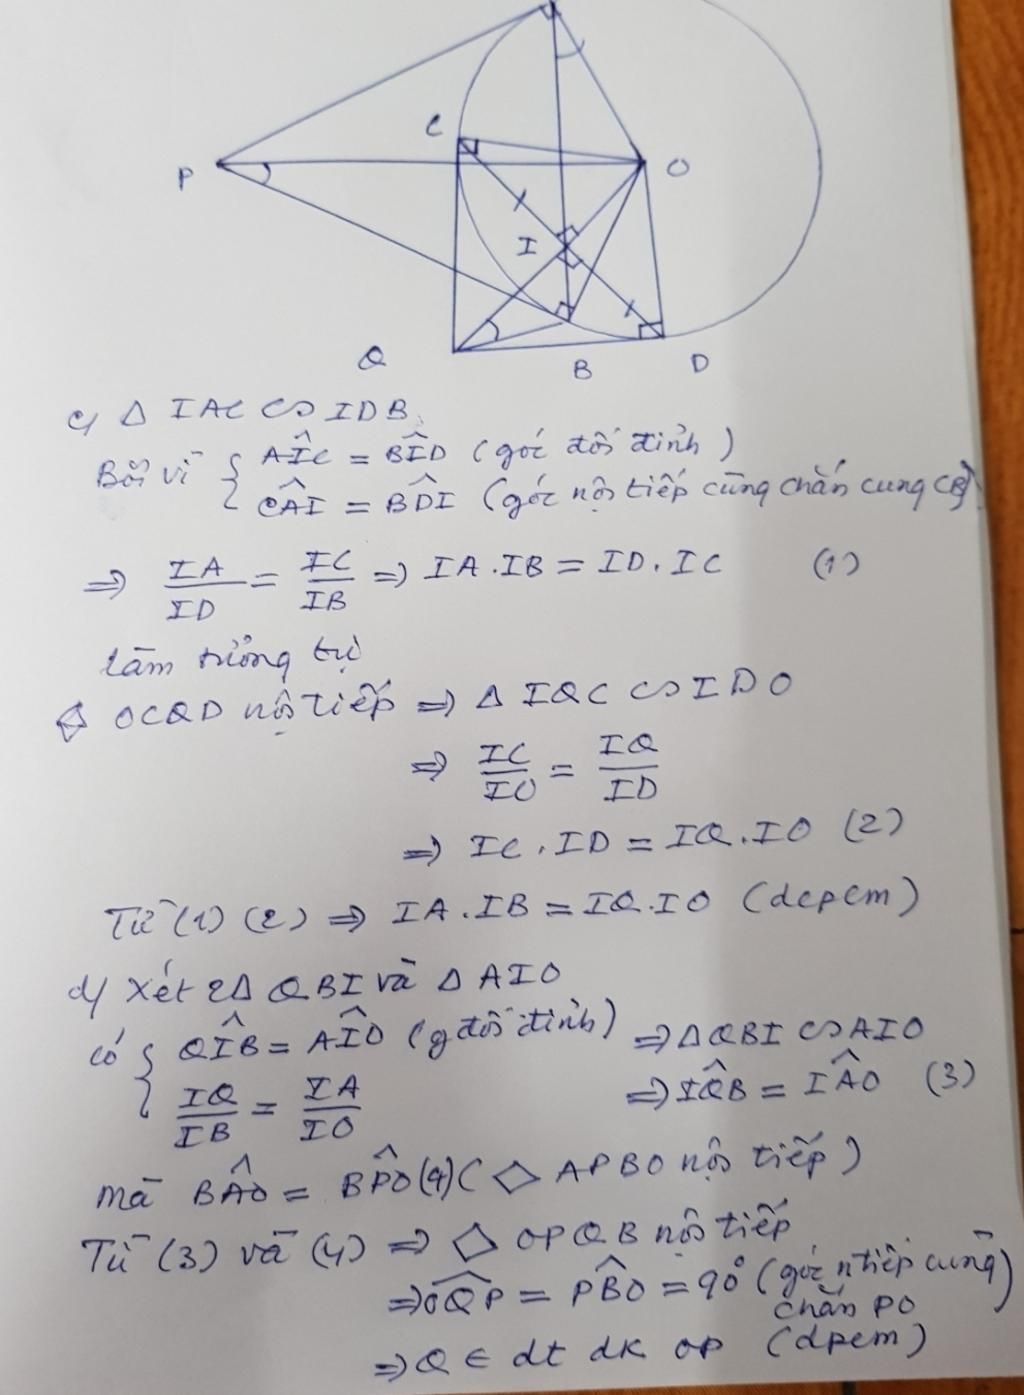 C
P
O
I
Q
B
D
c) Δ IAC ∽ IDB
Bởi vì { AÎC = BÎD (góc đối đỉnh)
CÂI = BD̂I (góc nội tiếp cùng chắn cung CB)
⇒ IA/ID = IC/IB ⇒ IA.IB = ID.IC (1)
làm tương tự
◇ OCQD nội tiếp ⇒ Δ IQC ∽ IDO
⇒ IC/IO = IQ/ID
⇒ IC.ID = IQ.IO (2)
Từ (1) (2) ⇒ IA.IB = IQ.IO (đcpcm)
d) Xét 2Δ QBI và Δ AIO
có { QÎB = AÎO (g đối đỉnh) ⇒ ΔQBI ∽ AIO
IQ/IB = IA/IO ⇒ IQ̂B = IÂO (3)
mà BÂO = BP̂O (4) (◇ APBO nội tiếp)
Từ (3) và (4) ⇒ ◇ OPQB nội tiếp
⇒ OQ̂P = PB̂O = 90° (góc n tiếp cùng
chắn PO)
⇒ Q ∈ đt đk OP (đpcm)